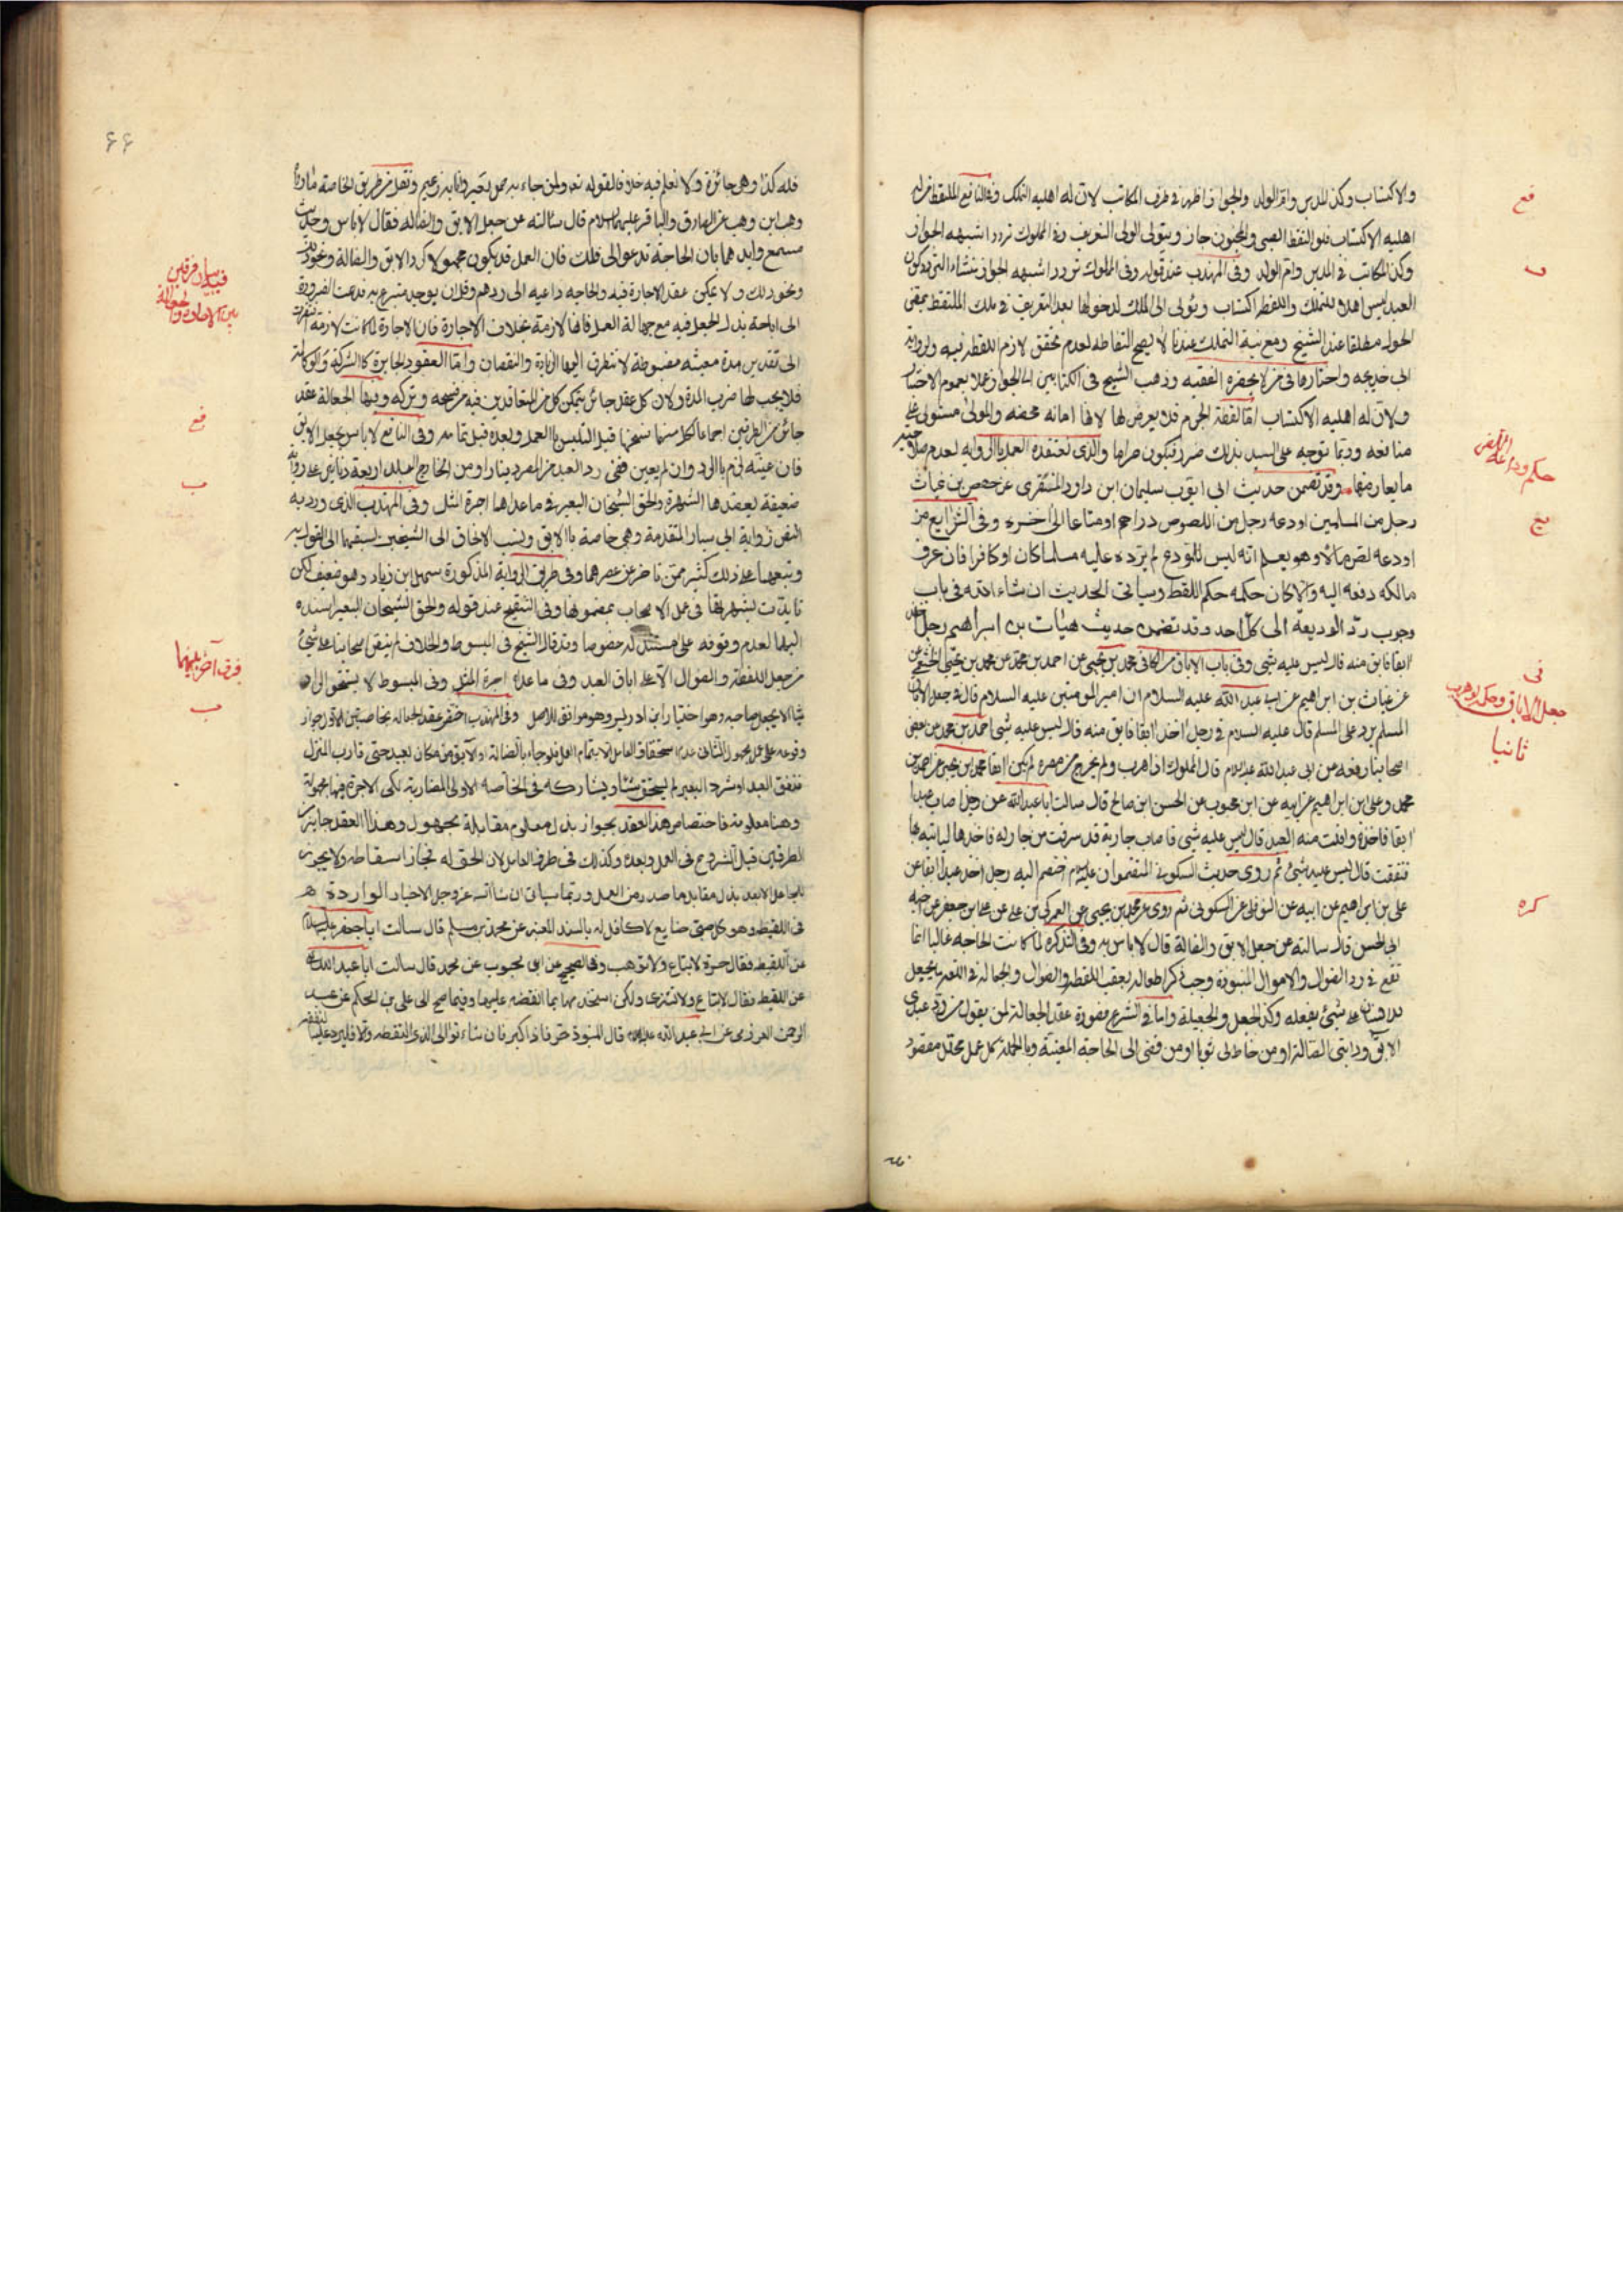 والاكتساب وكذا المدبر وام الولد والجواز اظهر في طرف المكاتب لان له اهلية التملك وفي النافع الملتقط من له
اهلية الاكتساب فلو التقط الصبي والمجنون جاز ويتولى الولي التعريف وفي المملوك تردد اشبهه الجواز
وكذا المكاتب في المدبر وام الولد وفي المهذب عند قوله وفي المملوك تردد اشبهه الجواز
العبد ليس اهلا للتملك واللقطة اكتساب ويؤل الى الملك لدخولها بعد التعريف في ملك الملتقط بمضي
الحول مطلقا عند الشيخ ومع نية التملك عندنا لا يصح التقاطه لعدم تحقق لازم اللقطة فيه ولرواية
ابي خديجة واختارها في من لا يحضره الفقيه وذهب الشيخ في الكتابين الى الجواز عملا بعموم الاخبار
ولان له اهلية الاكتساب اما لقطة الحرم فلا يعرض لها لانها امانة محضة والمولى مستولي على
منافعه وربما توجه على السيد بذلك ضرر فتكون حراما والذي نعتقده العمل بالرواية لعدم
ما يعارضها وقد تضمن حديث ابي ايوب سليمان ابن داود المنقري عن حفص بن غياث
رجل من المسلمين اودعه رجل من اللصوص دراهم او متاعا الى اخره وفي الشرايع من
اودعه لص مالا وهو يعلم انه ليس للمودع لم يرده عليه مسلما كان او كافرا فان عرف
مالكه دفعه اليه والا كان حكمه حكم اللقطة وسيأتي الحديث ان شاء الله في باب
وجوب رد الوديعة الى كل احد وقد تضمن حديث غياث بن ابراهيم رجل اخذ
ابقا فابق منه قال ليس عليه شيى وفي باب الاباق من الكافي محمد بن يحيى عن احمد بن محمد عن محمد بن يحيى الخثعمي
عن غياث بن ابراهيم عن ابي عبد الله عليه السلام ان امير المومنين عليه السلام قال في جعل الابق
المسلم يرد على المسلم قال عليه السلام في رجل اخذ ابقا فابق منه قال ليس عليه شيى احمد بن محمد عن بعض
اصحابنا رفعه عن ابي عبد الله عليه السلام قال المملوك اذا هرب ولم يخرج من مصره لم يكن ابقا محمد ابن يحيى عن احمد بن
محمد وعلى ابن ابراهيم عن ابيه عن ابن محبوب عن الحسن ابن صالح قال سالت ابا عبد الله عن رجل اصاب عبدا
ابقا فاخذه وافلت منه العبد قال ليس عليه شيى فاصاب جارية قد سرقت من جار له فاخذها لياتيه بها
فنفقت قال ليس عليه شيئ ثم روى حديث السكوني
علي بن ابراهيم عن ابيه عن النوفلي عن السكوني ثم روى عن محمد بن يحيى عن العمركي بن علي عن علي ابن جعفر عن اخيه
ابي الحسن قال سالته عن جعل الابق والضالة قال لا باس به وفي التذكرة لما كانت الحاجة غالبا انما
تقع في رد الضوال والاموال المنبوذة وجب ذكر الجعالة بعقب اللقطة والضوال والجعالة في اللغة ما يجعل
للانسان على شيئ يفعله وكذا الجعل والجعيلة واما في الشرع فصورة عقد الجعالة ان يقول من رد عبدي
الابق ودابتي الضالة او من خاط لي ثوبا او من قضى الى الحاجة المعينة وبالجملة كل عمل محلل مقصود
فع
حكم وديعة اللص
يع
في
جعل الاباق وحكم لو هرب
ثانيا
كره
۶۶
فله كذا وهي جائزة ولا نعلم فيه خلافا لقوله تعالى ولمن جاء به حمل بعير وانا به زعيم ونقل من طريق الخاصة ما رواه
وهب ابن وهب عن الصادق والباقر عليهما السلام قال سالته عن جعل الابق والضالة فقال لا باس وحديث
مسمع وايدهما بان الحاجة تدعوا الى ذلك فان العمل قد يكون مجهولا كرد الابق والضالة ونحو ذلك
ونحو ذلك ولا يمكن عقد الاجارة فيه والحاجة داعية الى ردهم وقل ان يوجد متبرع به فدعت الضرورة
الى اباحة بذل الجعل فيه مع جهالة العمل فانها لازمة بخلاف الاجارة فان الاجارة لما كانت لازمة افتقرت
الى تقدير مدة معينة مضبوطة لا تتطرق اليها الزيادة والنقصان واما العقود الجايزة كالشركة والوكالة
فلا يجب لها ضرب المدة ولان كل عقد جائز يتمكن كل من المتعاقدين فيه من فسخه وتركه وفيها الجعالة عقد
جائز من الطرفين اجماعا لكل منهما فسخها قبل التلبس بالعمل وبعده قبل تمامه وفي النافع لا باس بجعل الابق
فان عينه لزم بالرد وان لم يعين ففي رد العبد من المصر دينار ومن الخارج البلد اربعة دنانير على رواية
ضعيفة يعضدها الشهرة والحق الشيخان البعير وفي ما عداهما اجرة المثل وفي المهذب الذي ورد به
النص رواية ابي سيار المتقدمة وهي خاصة بالابق ونسب الالحاق الى الشيخين لسبقهما الى القول به
وتبعهما على ذلك كثير ممن تاخر عن عصرهما وفي طريق الرواية المذكورة سهل ابن زياد وهو ضعيف لكن
تايدت بشهرتها في عمل الاصحاب بمضمونها وفي التنقيح عند قوله والحق الشيخان البعير اسنده
اليهما لعدم وقوفه على مستند له خصوصا وقد قال الشيخ في المبسوط والخلاف لم ينص اصحابنا على شيئ
من جعل اللقطة والضوال الا على اباق العبد وفي ما عداه اجرة المثل وفي المبسوط لا يستحق الراد
شيا الا بجعل صاحبه وهو اختيار ابن ادريس وهو موافق للاصل وفي المهذب اختص عقد الجعالة بخاصيتين الاولى جواز
وقوعه على عمل مجهول الثانى عدم استحقاق العامل الا بتمام العمل فلو جاء بالضالة او الابق من مكان بعيد حتى قارب المنزل
فنفق العبد او شرد البعير لم يستحق شيئا ويشاركه في الخاصة الاولى المضاربة لكن الاجرة فيها مجهولة
وهنا معلومة فاختصاص هذا العقد بجواز بذل معلوم مقابلة بمجهول وهذا العقد جايز من
الطرفين قبل الشروع في العمل وبعده وكذلك في طرف العامل لان الحق له فجاز اسقاطه ولا يجوز
للجاعل الا بعد بذل مقابل ما صدر من العمل وربما سياتى ان شا الله عز وجل الاخبار الواردة
في اللقيط وهو كل صبي ضايع لا كافل له بالسند المعتبر عن محمد بن مسلم قال سالت ابا جعفر عليه السلام
عن اللقيط فقال حرة لا تباع ولا توهب وفي الصحيح عن ابن محبوب عن محمد قال سالت ابا عبد الله
عن اللقيط فقال لا تباع ولا تشترى ولكن استخدمها بما انفقت عليها وفيما صح الى علي بن الحكم عن عبد
الرحمن العرزمى عن ابي عبد الله عليه السلام قال المنبوذ حر فاذا كبر فان شاء توالى الذي التقطه والا فليرد عليه النفقة
في بيان فرق بين
بين الاجارة والجعالة
فع
ب
فرق اخر بينهما
ب